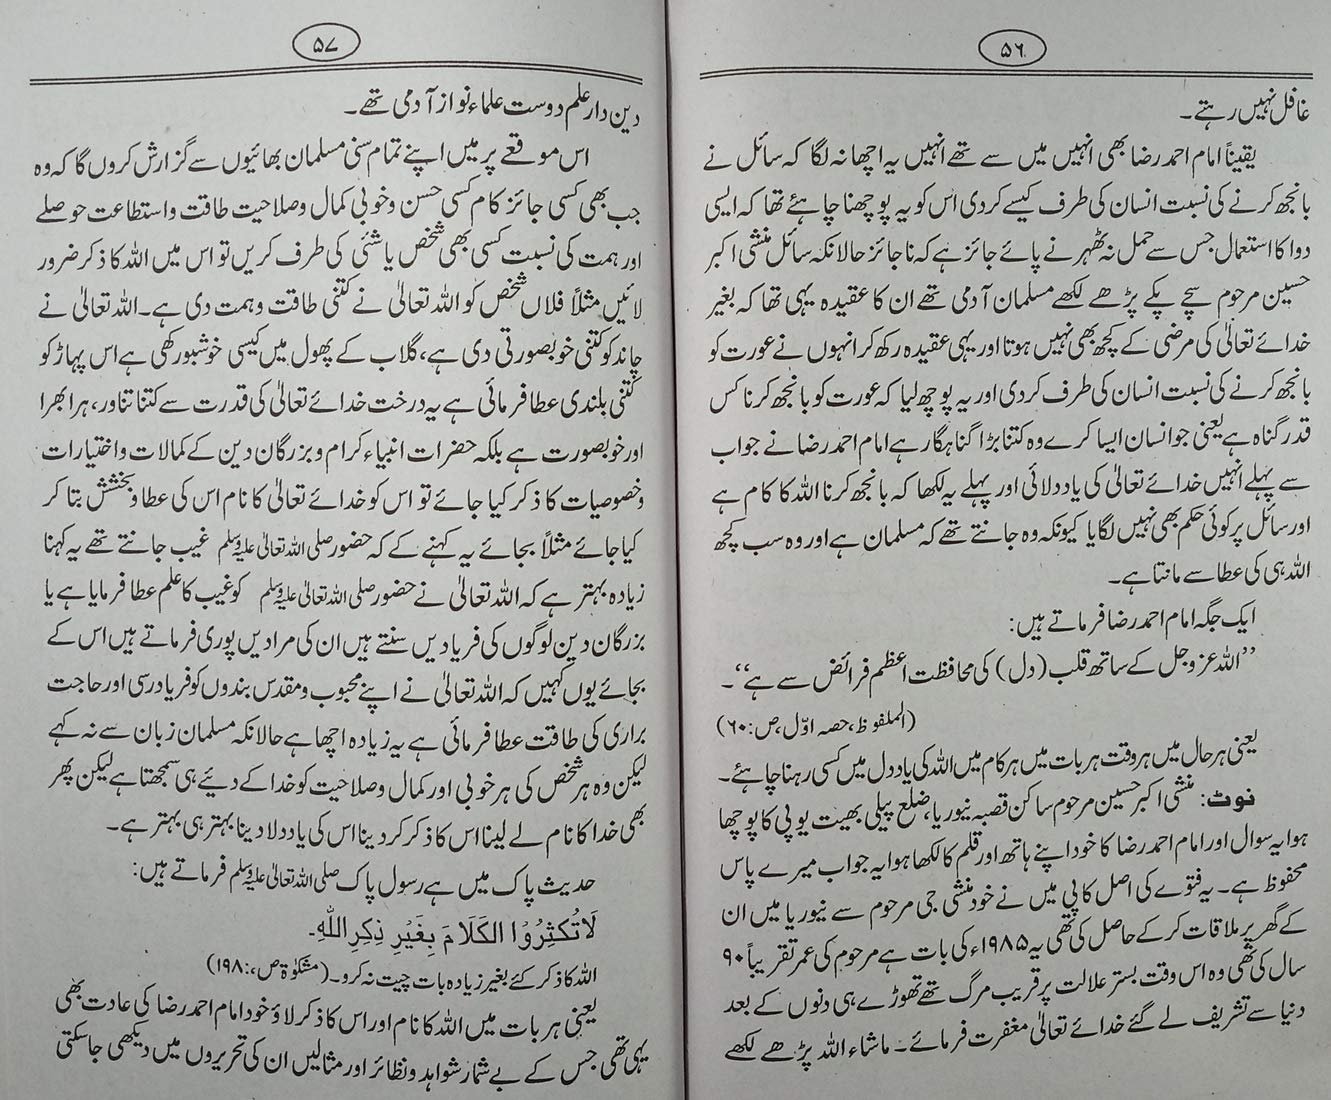 ۵۶
غافل نہیں رہتے۔
یقیناً امام احمد رضا بھی انہیں میں سے تھے انہیں یہ اچھا نہ لگا کہ سائل نے
بانجھ کرنے کی نسبت انسان کی طرف کیسے کر دی اس کو یہ پوچھنا چاہئے تھا کہ ایسی
دوا کا استعمال جس سے حمل نہ ٹھہرنے پائے جائز ہے کہ ناجائز حالانکہ سائل منشی اکبر
حسین مرحوم سچے پکے پڑھے لکھے مسلمان آدمی تھے ان کا عقیدہ یہی تھا کہ بغیر
خدائے تعالیٰ کی مرضی کے کچھ بھی نہیں ہوتا اور یہی عقیدہ رکھ کر انہوں نے عورت کو
بانجھ کرنے کی نسبت انسان کی طرف کر دی اور یہ پوچھ لیا کہ عورت کو بانجھ کرنا کس
قدر گناہ ہے یعنی جو انسان ایسا کرے وہ کتنا بڑا گناہگار ہے امام احمد رضا نے جواب
سے پہلے انہیں خدائے تعالیٰ کی یاد دلائی اور پہلے یہ لکھا کہ بانجھ کرنا اللہ کا کام ہے
اور سائل پر کوئی حکم بھی نہیں لگایا کیونکہ وہ جانتے تھے کہ مسلمان ہے اور وہ سب کچھ
اللہ ہی کی عطا سے مانتا ہے۔
ایک جگہ امام احمد رضا فرماتے ہیں:
”اللہ عزوجل کے ساتھ قلب (دل) کی محافظت اعظم فرائض سے ہے“۔
(الملفوظ، حصہ اوّل، ص:۶۰)
یعنی ہر حال میں ہر وقت ہر بات میں ہر کام میں اللہ کی یاد دل میں کسی رہنا چاہئے۔
نوٹ: منشی اکبر حسین مرحوم ساکن قصبہ نیوریا، ضلع پیلی بھیت یوپی کا پوچھا
ہوا یہ سوال اور امام احمد رضا کا خود اپنے ہاتھ اور قلم کا لکھا ہوا یہ جواب میرے پاس
محفوظ ہے۔ یہ فتوے کی اصل کاپی میں نے خود منشی جی مرحوم سے نیوریا میں ان
کے گھر پر ملاقات کر کے حاصل کی تھی یہ ۱۹۸۵ء کی بات ہے مرحوم کی عمر تقریباً ۹۰
سال کی تھی وہ اس وقت بستر علالت پر قریب مرگ تھے تھوڑے ہی دنوں کے بعد
دنیا سے تشریف لے گئے خدائے تعالیٰ مغفرت فرمائے۔ ماشاء اللہ پڑھے لکھے
۵۷
دین دار علم دوست علماء نواز آدمی تھے۔
اس موقعے پر میں اپنے تمام سنی مسلمان بھائیوں سے گزارش کروں گا کہ وہ
جب بھی کسی جائز کام کسی حسن و خوبی کمال و صلاحیت طاقت و استطاعت حوصلے
اور ہمت کی نسبت کسی بھی شخص یا شئی کی طرف کریں تو اس میں اللہ کا ذکر ضرور
لائیں مثلاً فلاں شخص کو اللہ تعالیٰ نے کتنی طاقت و ہمت دی ہے۔ اللہ تعالیٰ نے
چاند کو کتنی خوبصورتی دی ہے، گلاب کے پھول میں کیسی خوشبو رکھی ہے اس پہاڑ کو
کتنی بلندی عطا فرمائی ہے یہ درخت خدائے تعالیٰ کی قدرت سے کتنا تناور، ہرا بھرا
اور خوبصورت ہے بلکہ حضرات انبیاء کرام و بزرگان دین کے کمالات و اختیارات
و خصوصیات کا ذکر کیا جائے تو اس کو خدائے تعالیٰ کا نام اس کی عطا و بخشش بتا کر
کیا جائے مثلاً بجائے یہ کہنے کے کہ حضور صلی اللہ تعالیٰ علیہ وسلم غیب جانتے تھے یہ کہنا
زیادہ بہتر ہے کہ اللہ تعالیٰ نے حضور صلی اللہ تعالیٰ علیہ وسلم کو غیب کا علم عطا فرمایا ہے یا
بزرگان دین لوگوں کی فریادیں سنتے ہیں ان کی مرادیں پوری فرماتے ہیں اس کے
بجائے یوں کہیں کہ اللہ تعالیٰ نے اپنے محبوب و مقدس بندوں کو فریاد رسی اور حاجت
براری کی طاقت عطا فرمائی ہے یہ زیادہ اچھا ہے حالانکہ مسلمان زبان سے نہ کہے
لیکن وہ ہر شخص کی ہر خوبی اور کمال و صلاحیت کو خدا کے دیئے ہی سمجھتا ہے لیکن پھر
بھی خدا کا نام لے لینا اس کا ذکر کر دینا اس کی یاد دلا دینا بہتر ہی بہتر ہے۔
حدیث پاک میں ہے رسول پاک صلی اللہ تعالیٰ علیہ وسلم فرماتے ہیں:
لَا تُكْثِرُوا الكَلَامَ بِغَيْرِ ذِكِرِ اللّٰهِ۔
اللہ کا ذکر کئے بغیر زیادہ بات چیت نہ کرو۔ (مشکوٰۃ ص،:۱۹۸)
یعنی ہر بات میں اللہ کا نام اور اس کا ذکر لاؤ خود امام احمد رضا کی عادت بھی
یہی تھی جس کے بے شمار شواہد و نظائر اور مثالیں ان کی تحریروں میں دیکھی جا سکتی